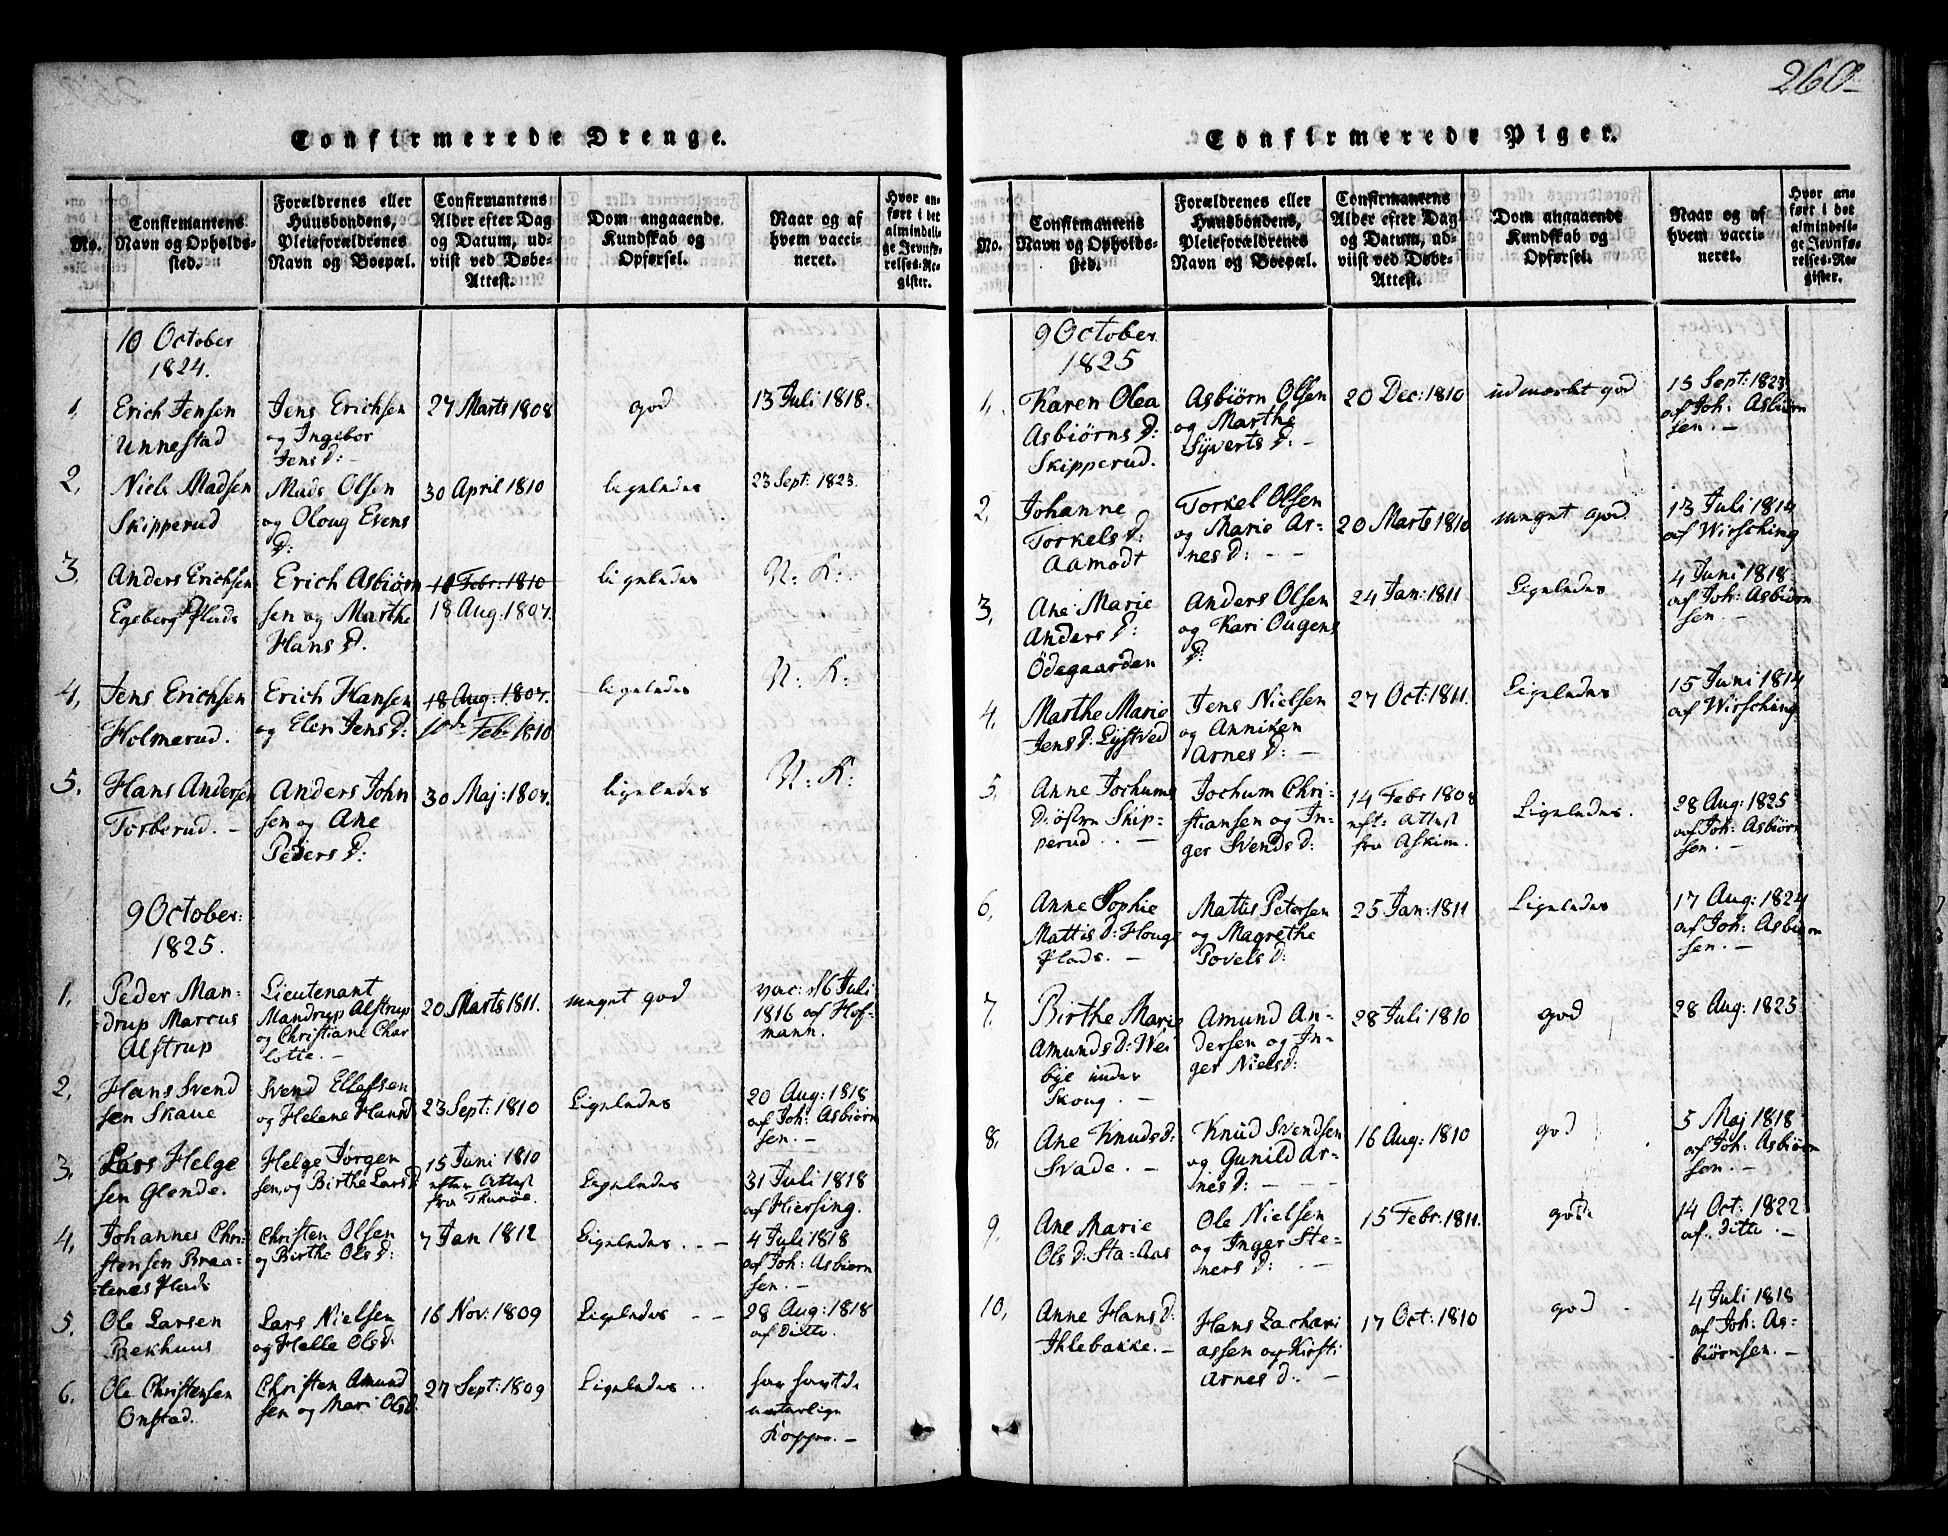 260
Confirmerede Drenge.
No.
Confirmantens
Navn og Opholds-
sted.
Forældrenes eller
Huusbondens,
Pleieforældrenes
Navn og Boepæl.
Confirmantens
Alder efter Dag
og Datum, ud-
viist ved Døbe-
Attest.
Dom angaaende
Kundskab og
Opførsel.
Naar og af
hvem vacci-
neret.
Hvor an-
ført i det
almindeli-
ge Jevnfø-
relses-Re-
gister.
10 October
1824.
1.
Erich Jensen
Unnestad
Jens Erichsen
og Ingebor
Jens D: -
27 Marts 1808
god
13 Juli 1818.
2.
Niels Madsen
Skipperud
Mads Olsen
og Oloug Evens
D:
30 April 1810
ligeledes
23 Sept: 1823.
3.
Anders Erichsen
Egeberg Plads
Erich Asbiørn
sen og Marthe
Hans D.
10 Febr: 1810
18 Aug: 1807.
ligeledes
N: K:
4.
Jens Erichsen
Holmerud.
Erich Hansen
og Eleri Jens D:
18 Aug: 1807.
10de Feb: 1810
ligeledes
N: K:
5.
Hans Andersen
Torberud. -
Anders John
sen og Ane
Peders D:
30 Maj: 1807.
ligeledes
N: K:
9 October:
1825.
1.
Peder Man-
drup Marcus
Alstrup
Lieutenant
Mandrup Alstrup
og Christiane Char
lotte. -
20 Marts 1811.
meget god
vac: 16 Juli
1816 af Hof-
mann.
2.
Hans Svend
sen Skaue
Svend Ellefsen
og Helene Hansd
23 Sept: 1810
Ligeledes
20 Aug: 1818
af Joh: Asbiørn
sen. -
3.
Lars Helge
sen Glende.
Helge Jørgen
sen og Birthe Lars D
15 Juni 1810
efter Attest
fra Thunøe.
Ligeledes
31 Juli 1818
af Hiersing.
4.
Johannes Chri-
stensen Braa-
tenes Plads
Christen Olsen
og Birthe Ols D:
7 Jan 1812
Ligeledes. - -
4 Juli 1818
af Joh: Asbiørn
sen. -
5.
Ole Larsen
Bekhuus
Lars Nielsen
og Helle Ols D:
16 Nov: 1809
Ligeledes - -
28 Aug: 1818
af Ditto.
6.
Ole Christensen
Onstad.
Christen Amund
sen og Mari Olsd.
27 Sept: 1809
Ligeledes ..
har havt de
naturlige
Kopper. -
Confirmerede Piger.
No.
Confirmantens
Navn og Opholds-
sted.
Forældrenes eller
Huusbondens,
Pleieforældrenes
Navn og Boepæl.
Confirmantens
Alder efter Dag
og Datum, ud-
viist ved Døbe-
Attest.
Dom angaaende
Kundskab og
Opførsel.
Naar og af
hvem vacci-
neret.
Hvor an-
ført i det
almindeli-
ge Jevnfø-
relses-Re-
gister.
9 October
1825
1.
Karen Olea
Asbiørns D:
Skipperud.
Asbiørn Olsen
og Marthe
Syverts D: -
20 Dec: 1810
udmærket god
15 Sept: 1823
af Joh: Asbiørn
sen. -
2.
Johanne
Torkels D:
Aamodt
Torkel Olsen
og Marie Ar-
nes D: - -
20 Marts 1810
meget god
13 Juli 1814
af Wirsching
3.
Ane Marie
Anders D:
Ødegaarden
Anders Olsen
og Kari Ougens
D:
24 Jan: 1811
Ligeledes
4 Juni 1818
af Joh: Asbiørn
sen. -
4.
Marthe Marie
Jens D: Lystved
Jens Nielsen
og Anniken
Arnes D: -
27 Oct: 1811.
Ligeledes
15 Juni 1814
af Wirsching
5.
Anne Jochums
D: østen Skip-
perud. . -
Jochum Chri-
stiansen og In-
ger Svends D:
14 Febr 1808
eft: Attest
fra Askim.
Ligeledes.
28 Aug: 1825
af Joh: Asbiørn
sen. -
6.
Anne Sophie
Mattis D: Houge
Plads. -
Mattis Petersen
og Magrethe
Povels D:
25 Jan: 1811
Ligeledes
17 Aug: 1824
af Joh: Asbiørn
sen. -
7.
Birthe Marie
Amunds D: Wei
bye under
Skoug. -
Amund An-
dersen og In-
ger Niels D:
28 Juli 1810
god
28 Aug: 1825
8.
Ane Knuds D:
Svade. -
Knud Svendsen
og Gunild Ar-
nes D: - - -
16 Aug: 1810
god
5 Maj 1818
af Joh: Asbiørn
sen. -
9.
Ane Marie
Ols D: Sta=Aas
Ole Nielsen
og Inger Ste-
ners D: . -
15 Febr: 1811.
god.
14 Oct: 1822
af. Ditto. -
10.
Anne Hans D:
Ihlebakke. -
Hans Zachari
assen og Kirsti
Arnes D. -
17 Oct: 1810
god -
4 Juli 1818
af Joh: As-
biørnsen. -